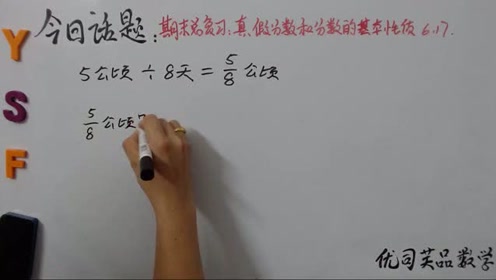 今日话题:期末总复习,真、假分数和分数的基本性质 6.17.
5公顷÷8天=5/8公顷
5/8公顷
Y
S
F
优司芙品数学